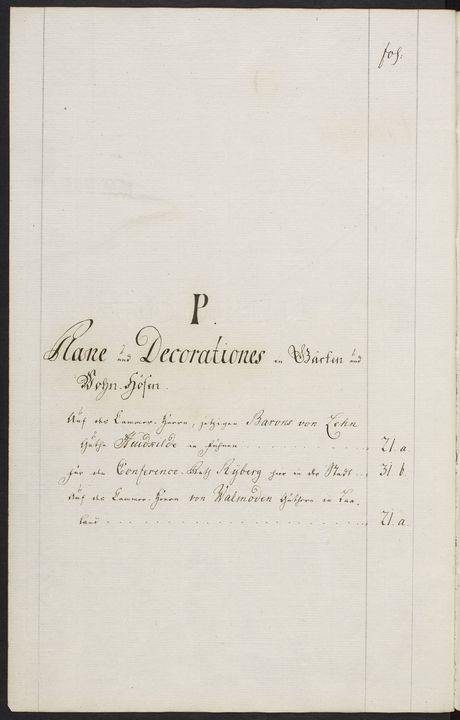 fol:
P.
Plane und Decorationes in Gärten und
Wohn-Höfen.
Auf des Cammer-Herrn, jetzigen Barons von Lehn
Guthe Hvidkilde in Fühnen 21. a.
für den Conference-Rath Ryberg hier in der Stadt 31. b.
Auf des Cammer-Herrn von Walmoden Güthern in Laa-
land 21. a.